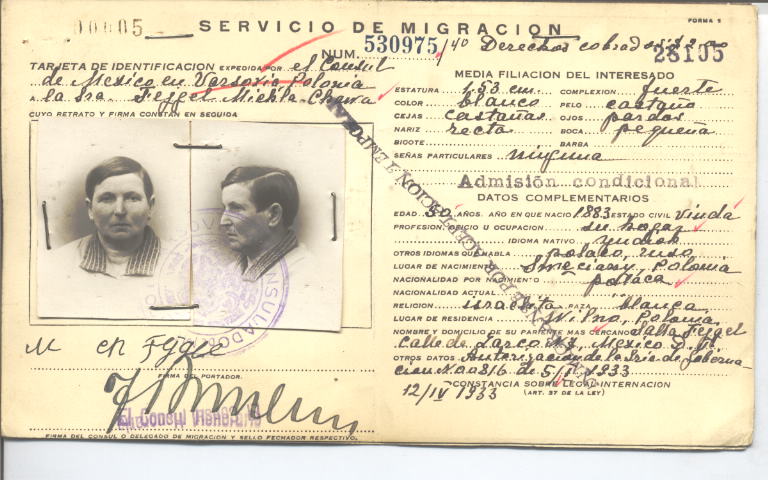 00005 SERVICIO DE MIGRACION
FORMA 5
NUM. 530975/40 Derechos cobrados
28105
TARJETA DE IDENTIFICACION EXPEDIDA POR el Consul
de Mexico en Varsovia Polonia
A la Sra. Fejgel Michla-Chawa
CUYO RETRATO Y FIRMA CONSTAN EN SEGUIDA
M Ch Fejgel
FIRMA DEL PORTADOR.
El Consul Honorario
FIRMA DEL CONSUL O DELEGADO DE MIGRACION Y SELLO FECHADOR RESPECTIVO.
MEDIA FILIACION DEL INTERESADO
ESTATURA 1,53 cm. COMPLEXION fuerte
COLOR blanco PELO castaño
CEJAS castañas OJOS pardos
NARIZ recta BOCA pequeña
BIGOTE BARBA
SEÑAS PARTICULARES ninguna
Admisión condicional
DATOS COMPLEMENTARIOS
EDAD 50 AÑOS. AÑO EN QUE NACIO 1883 ESTADO CIVIL viuda
PROFESION, OFICIO U OCUPACION su hogar
IDIOMA NATIVO yudish
OTROS IDIOMAS QUE HABLA polaco, ruso
LUGAR DE NACIMIENTO Smeciany, Polonia
NACIONALIDAD POR NACIMIENTO polaca
NACIONALIDAD ACTUAL
RELIGION israelita RAZA blanca
LUGAR DE RESIDENCIA Wilno, Polonia
NOMBRE Y DOMICILIO DE SU PARIENTE MAS CERCANO Salta Fejgel
Calle de Zarco Mexico D.F.
OTROS DATOS Autorizacion de la Sria de Goberna-
cion No. 00816 de 5/II 1933
CONSTANCIA SOBRE LEGAL INTERNACION
12/IV 1933 (ART. 37 DE LA LEY)